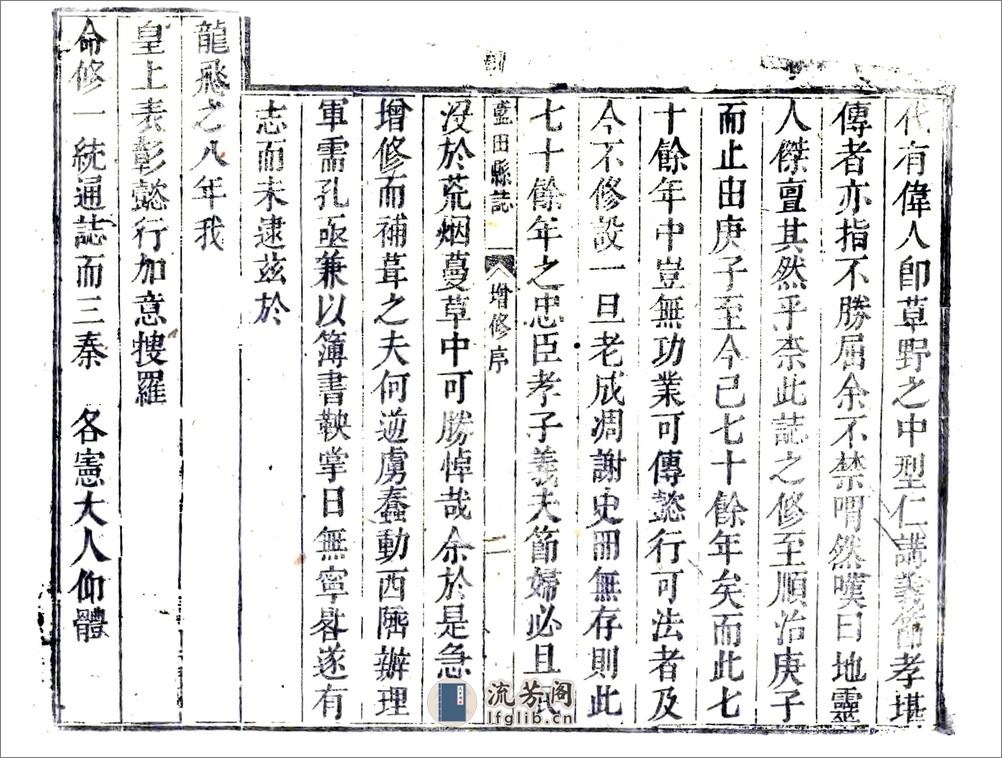 代有偉人卽草野之中型仁講義節孝堪
傳者亦指不勝屈余不禁喟然嘆曰地靈
人傑亶其然乎柰此誌之修至順治庚子
而止由庚子至今已七十餘年矣而此七
十餘年中豈無功業可傳懿行可法者及
今不修設一旦老成凋謝史冊無存則此
七十餘年之忠臣孝子義夫節婦必且
藍田縣誌
增修序
二
没於荒烟蔓草中可勝悼哉余於是急
增修而補葺之夫何逆虜蠢動西陲辦理
軍需孔亟兼以簿書鞅掌日無寧晷遂有
志而未逮茲於
龍飛之八年我
皇上表彰懿行加意搜羅
命修一統通誌而三秦 各憲大人仰體
流芳阁
lfglib.cn